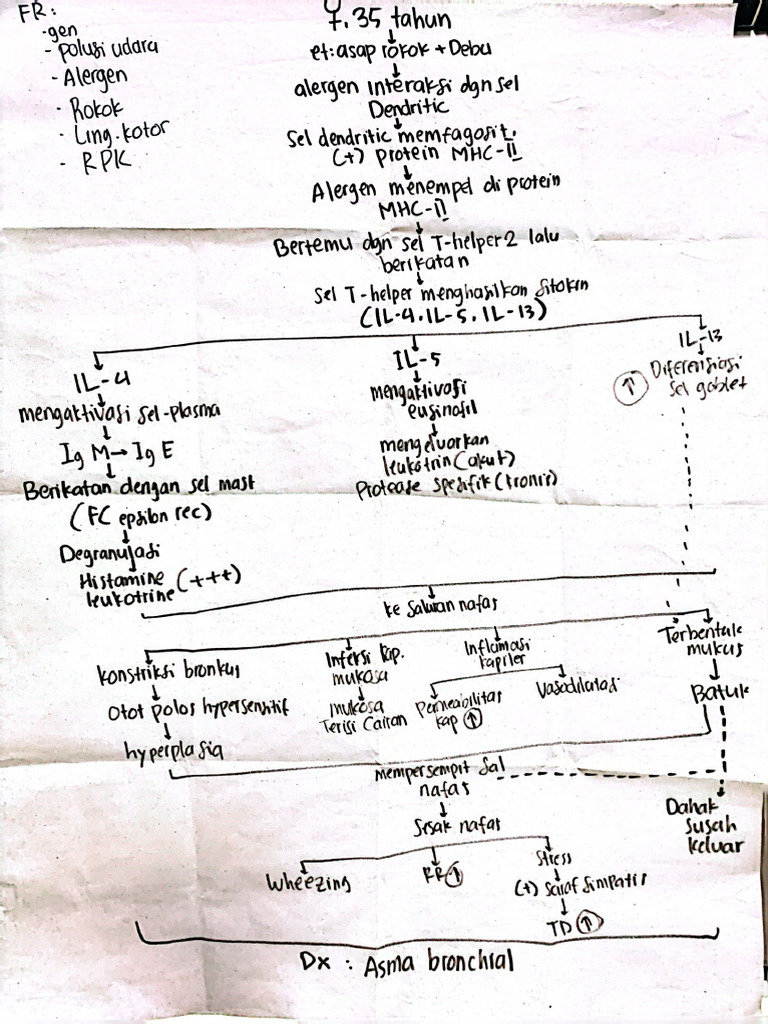 FR:
-gen
- polusi udara
- Alergen
- Rokok
- Ling. kotor
- RPK
♀. 35 tahun
et: asap rokok + Debu
alergen interaksi dgn sel
Dendritic
Sel dendritic memfagosit.
(+) protein MHC-II
Alergen menempel di protein
MHC-II
Bertemu dgn sel T-helper2 lalu
berikatan
Sel T-helper menghasilkan sitokin
(IL-4, IL-5, IL-13)
IL-4
mengaktivasi sel-plasma
Ig M → Ig E
Berikatan dengan sel mast
(FC epsilon rec)
Degranulasi
Histamine (+++)
leukotrine
IL-5
mengaktivasi
eusinofil
mengeluarkan
leukotrin (akut)
Protease spesifik (kronis)
IL-13
↑ Diferensiasi
sel goblet
ke saluran nafas
konstriksi bronkus
Otot polos hypersensitif
hyperplasia
Infeksi kap.
mukosa
mukosa
Terisi Cairan
Inflamasi
kapiler
Permeabilitas
kap ↑
Vasodilatasi
Terbentuk
mukus
Batuk
mempersempit sal
nafas
Dahak
susah
keluar
Sesak nafas
Wheezing
RR ↑
Stress
(+) saraf simpatis
TD ↑
Dx : Asma bronchial